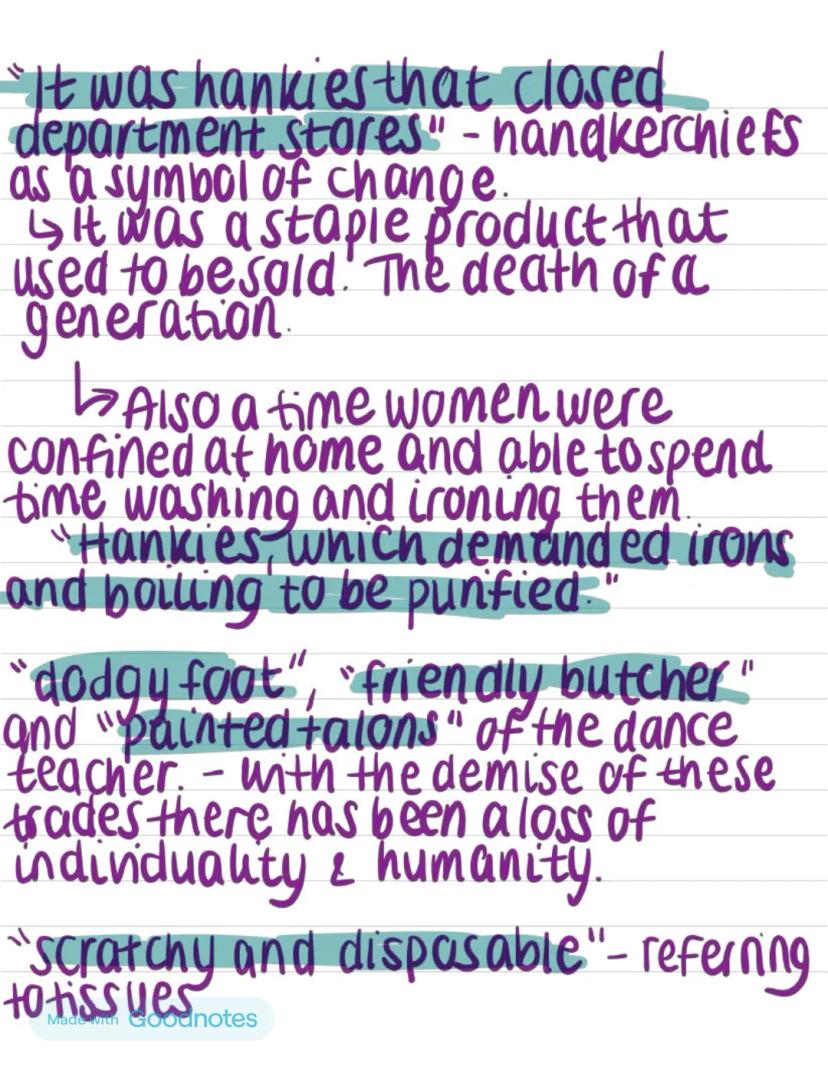 "It was hankies that closed
department stores" - handkerchiefs
as a symbol of change.
↳ It was a staple product that
used to be sold. The death of a
generation.
↳ Also a time women were
confined at home and able to spend
time washing and ironing them.
"Hankies, which demanded irons
and boiling to be purified."
"dodgy foot", "friendly butcher"
and "painted talons" of the dance
teacher. - with the demise of these
trades there has been a loss of
individuality & humanity.
"scratchy and disposable" - referring
to tissues
Made with Goodnotes